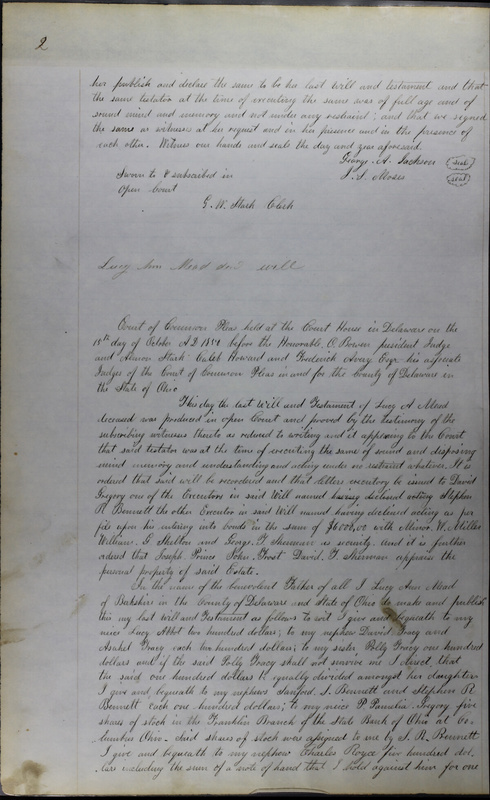 2
her publish and declare the same to be her last will and testament and that
the same testator at the time of executing the same was of full age and of
sound mind and memory and not under any restraint; and that we signed
the same as witnesses at her request and in his presence and in the presence of
each other. Witness our hands and seals the day and year aforesaid.
George. A. Jackson (seal)
Sworn to & subscribed in
Moses (seal)
open Court
G. W. Stark Clerk
Lucy Ann Mead dec'd will
Court of Common Pleas held at the Court House in Delaware on the
day of October AD before the Honorable. O. Bowen president Judge
and Almon Stark Caleb Howard and Frederick Avery Esqr. his associate
Judges of the Court of Common Pleas in and for the County of Delaware in
the State of Ohio
This day the last Will and Testament of Lucy A Mead
deceased was produced in open Court and proved by the testimony of the
subscribing witnesses thereto as reduced to writing and it appearing to the Court
that said testator was at the time of executing the same of sound and disposing
mind memory and understanding and acting under no restraint whatever. It is
ordered that said will be recorded and that letters executory be issued to David
Gregory one of the Executors in said Will named having declined acting Stephen
R. Bennett the other Executor in said Will named having declined acting as per
file upon his entering into bonds in the sum of $6000,00 with Minor. W. Millis
William. G Shelton and George. F Sherman as security. And it is further
ordered that Joseph Prince John. Frost David. T Sherman appraise the
personal property of said Estate.
In the name of the benevolent Father of all I Lucy Ann Mead
of Berkshire in the County of Delaware and State of Ohio do make and publish
this my last will and Testament as follows to wit I give and bequeath to my
niece Lucy Abbot two hundred dollars; to my nephew David Gracy and
Asahel Gracy each two hundred dollars; to my sister Polly Gracy one hundred
dollars and if the said Polly Gracy shall not survive me I direct that
the said one hundred dollars be equally divided amongst her daughters
I give and bequeath to my nephews Sanford. S. Bennett and Stephen R
Bennett each one hundred dollars; to my niece P. Pamilia Gregory five
shares of stock in the Franklin Branch of the State Bank of Ohio at Co-
lumbus Ohio. said shares of stock were assigned to me by S. R. Bennett
I give and bequeath to my nephew Charles Royce five hundred dol-
lars including the sum of a note of hand that I hold against him for one